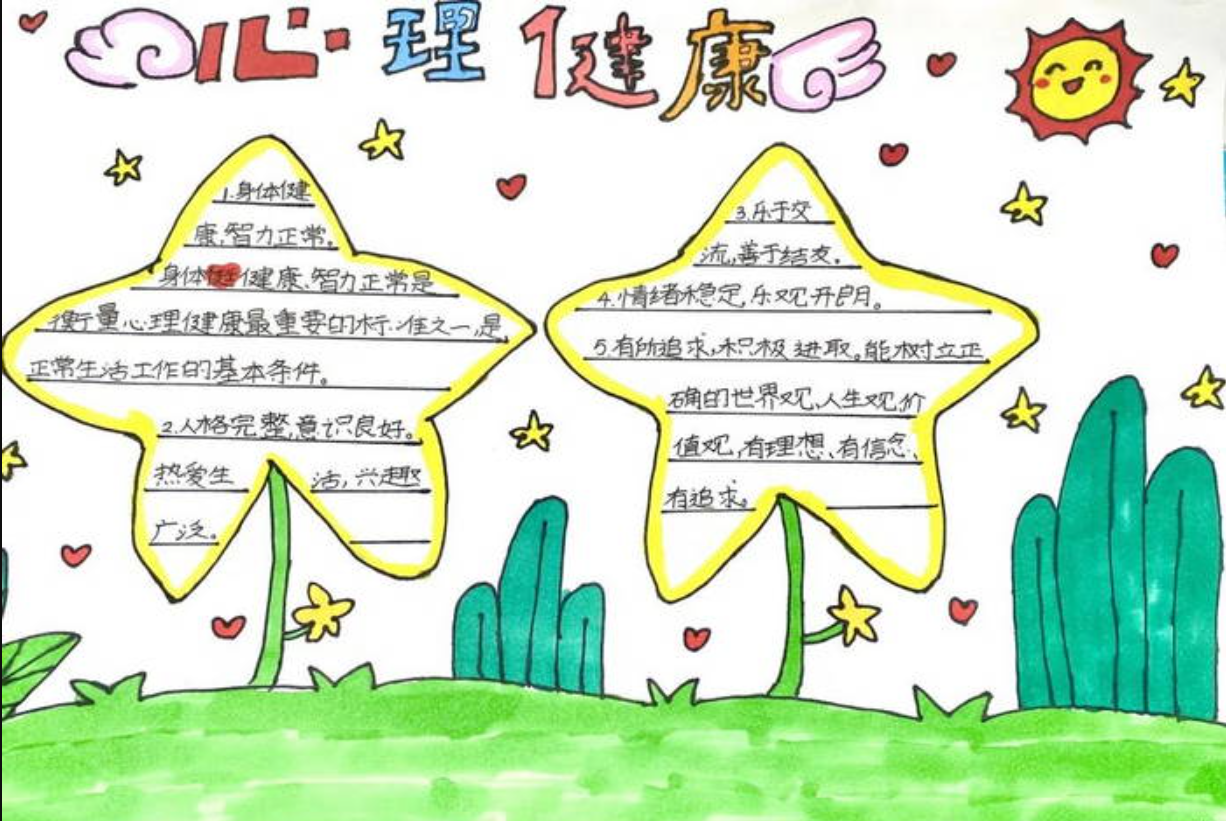 心理健康
1.身体健
康,智力正常。
身体健康、智力正常是
衡量心理健康最重要的标准之一,是
正常生活工作的基本条件。
2.人格完整,意识良好。
热爱生活,兴趣
广泛。
3.乐于交
流,善于结友。
4.情绪稳定,乐观开朗。
5.有所追求,积极进取。能树立正
确的世界观,人生观,价
值观,有理想、有信念、
有追求。